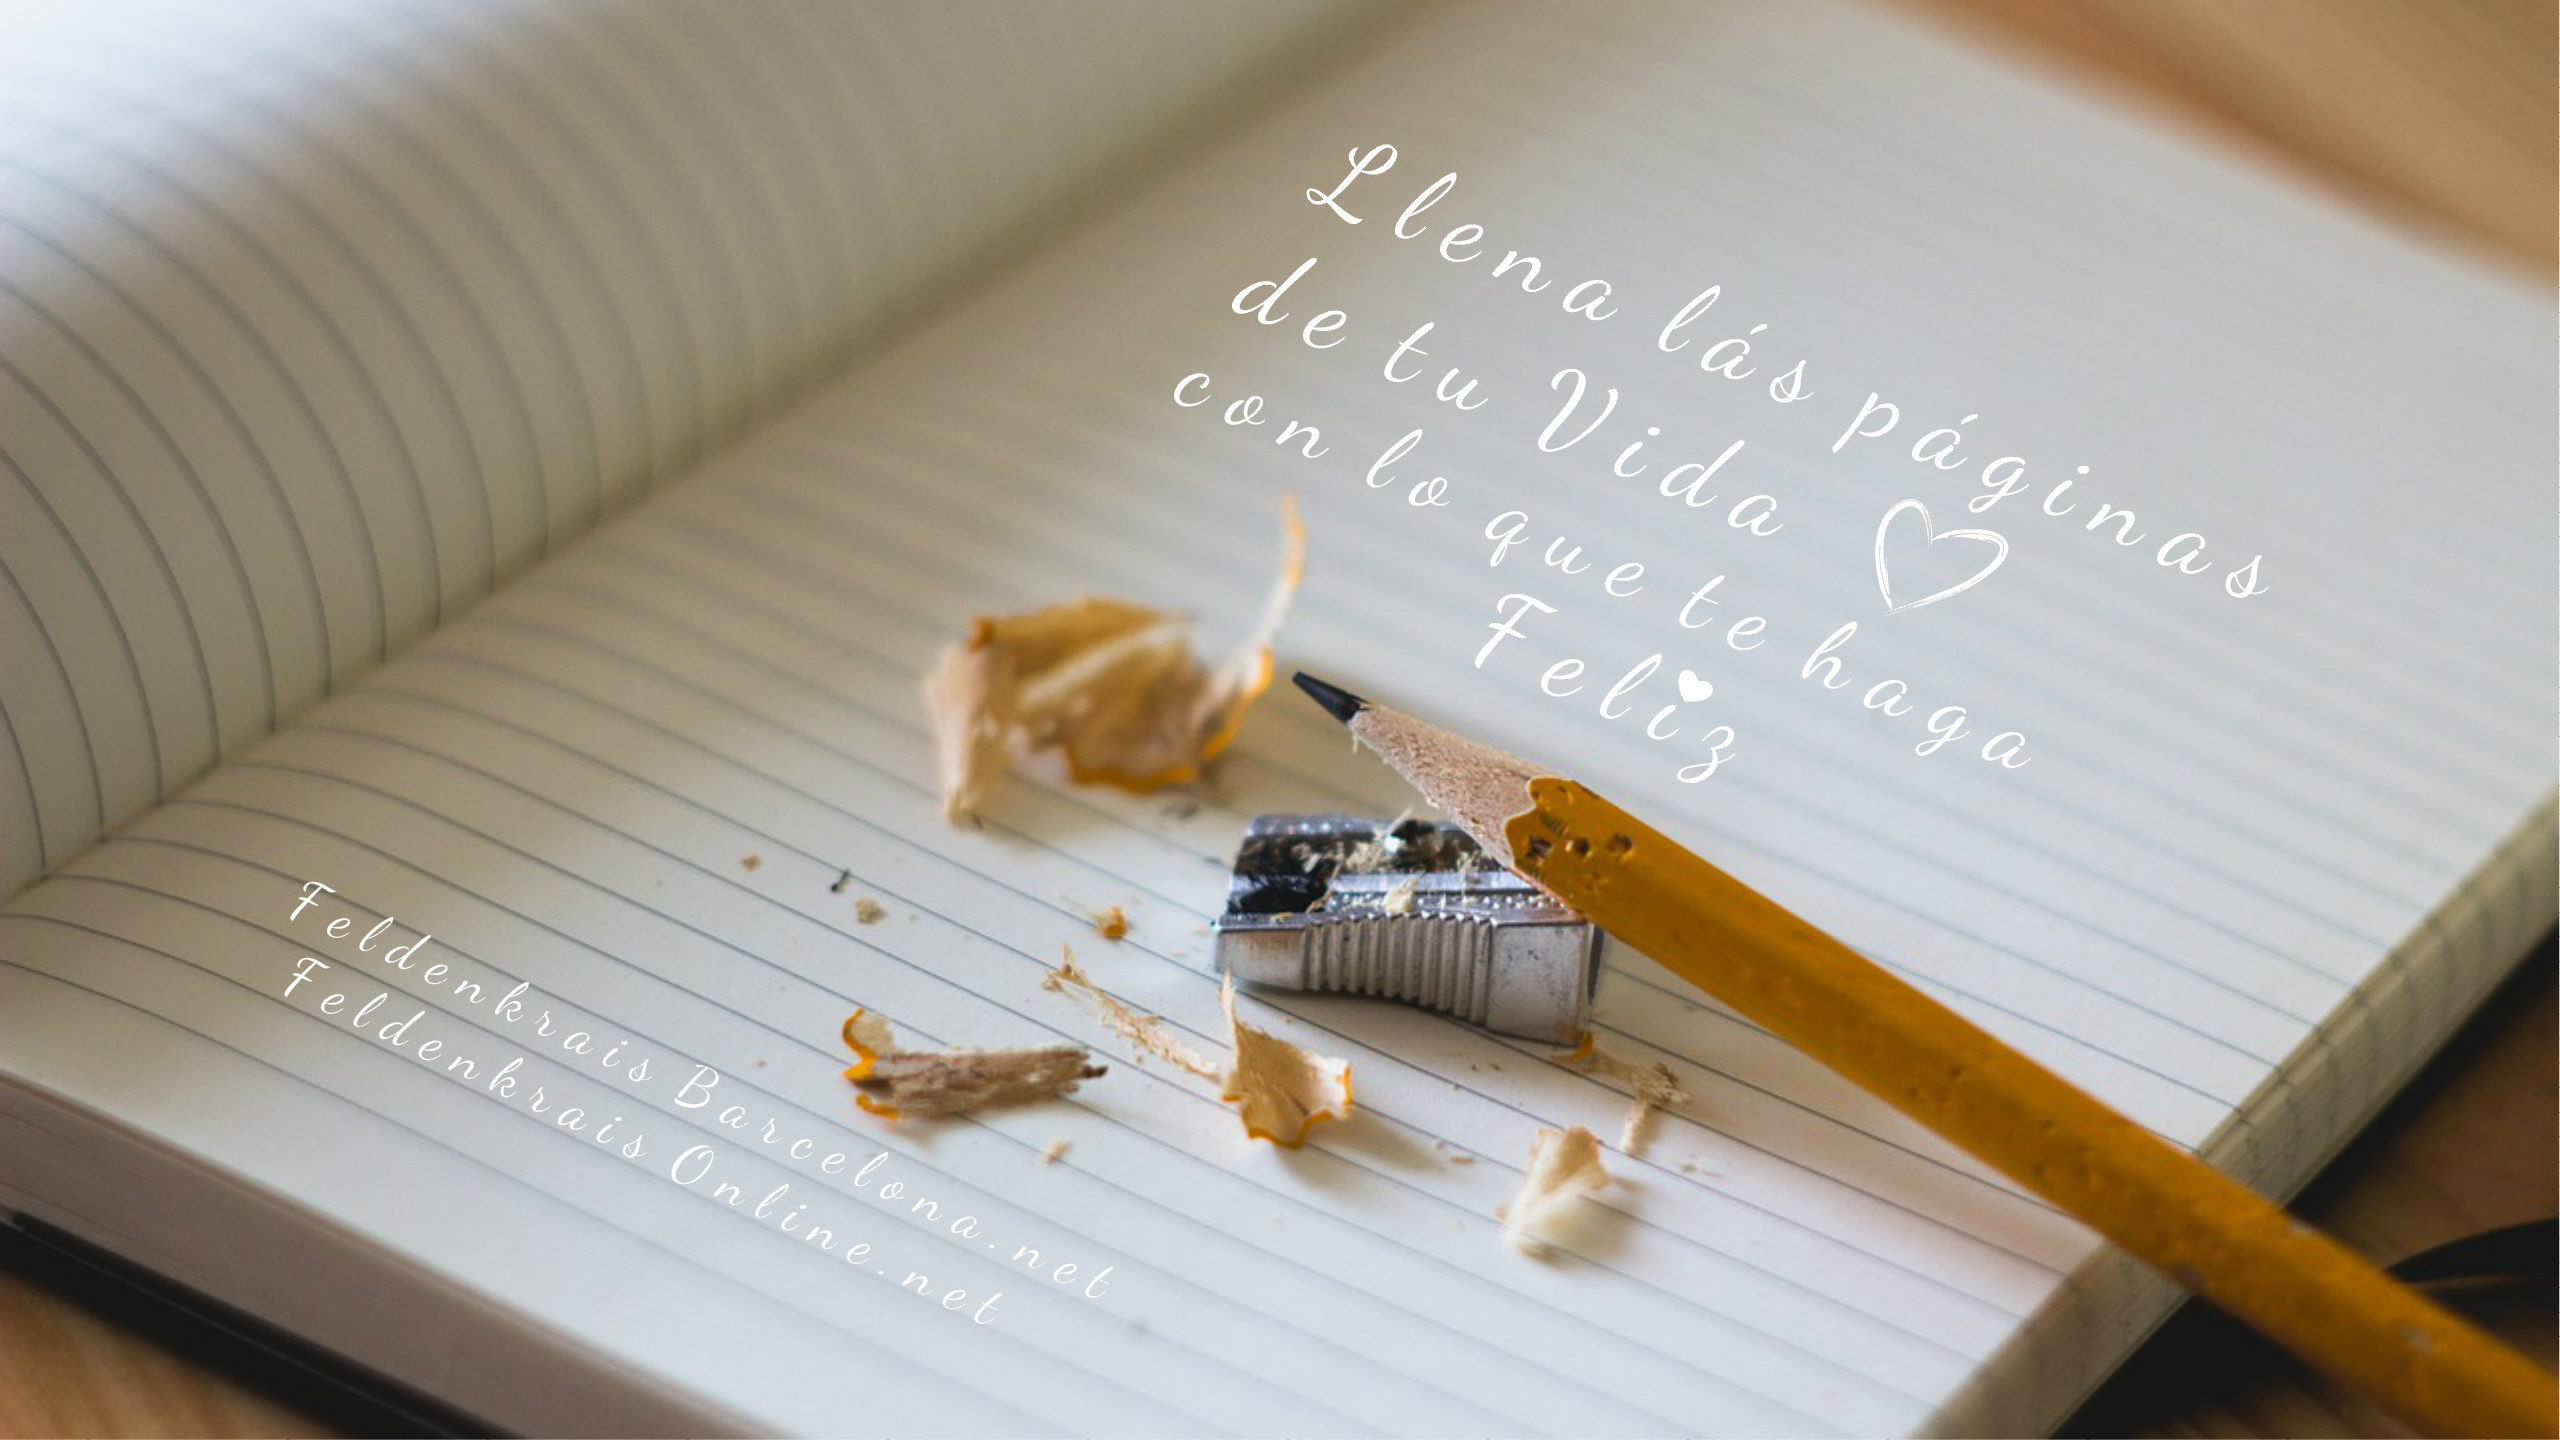 Llena lás páginas
de tu Vida
con lo que te haga
Feliz
Feldenkrais Barcelona.net
Feldenkrais Online.net